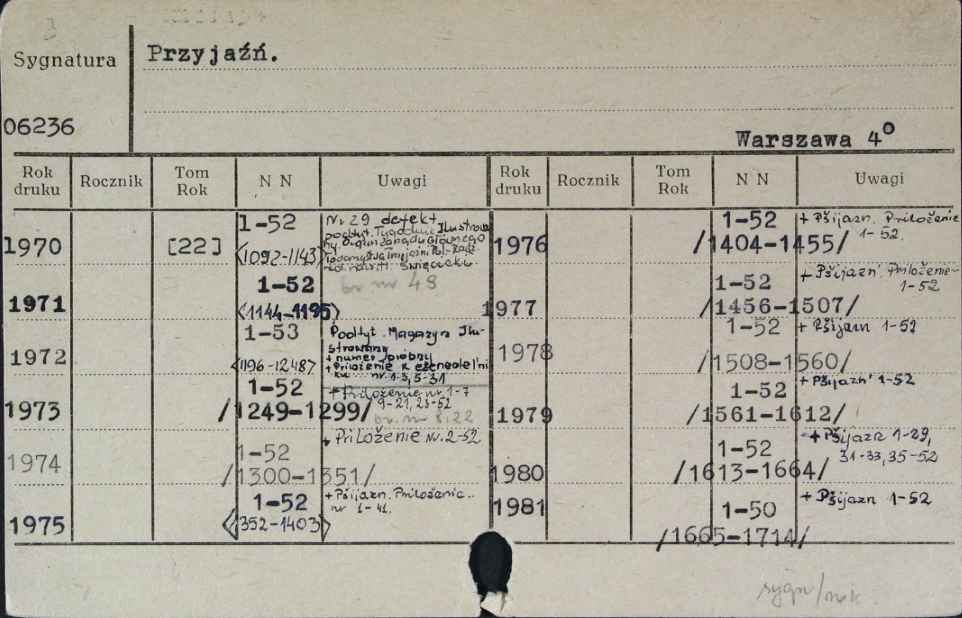 Sygnatura
Przyjaźń.
06236
Warszawa 4°
Rok druku Rocznik Tom Rok N N Uwagi Rok druku Rocznik Tom Rok N N Uwagi
1970 [22] 1-52 <1092-1143>
Nr 29 defekt
podtyt. Tygodnik Ilustrowa
ny. Organ Zarządu Głównego
Święcicki
1971 1-52 <1144-1195>
br nr 48
1972 1-53 <1196-1248>
Podtyt. Magazyn Ilu-
strowany
+ numer próbny
+ Priloženie k eženedel'ni
ku nr. 1-3, 5-31
1973 1-52 /1249-1299/
+ Priloženie nr. 1-7
9-21, 23-52
br. nr 8.22
1974 1-52 /1300-1351/
+ Priloženie nr. 2-52
1975 1-52 <1352-1403>
+ Pšijazn. Priloženie..
nr 1-41.
1976 1-52 /1404-1455/
+ Pšijazn. Priloženie
1-52
1977 1-52 /1456-1507/
+ Pšijazn' Priloženie-
1-52
1978 1-52 /1508-1560/
+ Pšijazn 1-52
1979 1-52 /1561-1612/
+ Pšijazn' 1-52
1980 1-52 /1613-1664/
+ Pšijazn 1-29,
31-33, 35-52
1981 1-50 /1665-1714/
+ Pšijazn 1-52
sygn/rok.